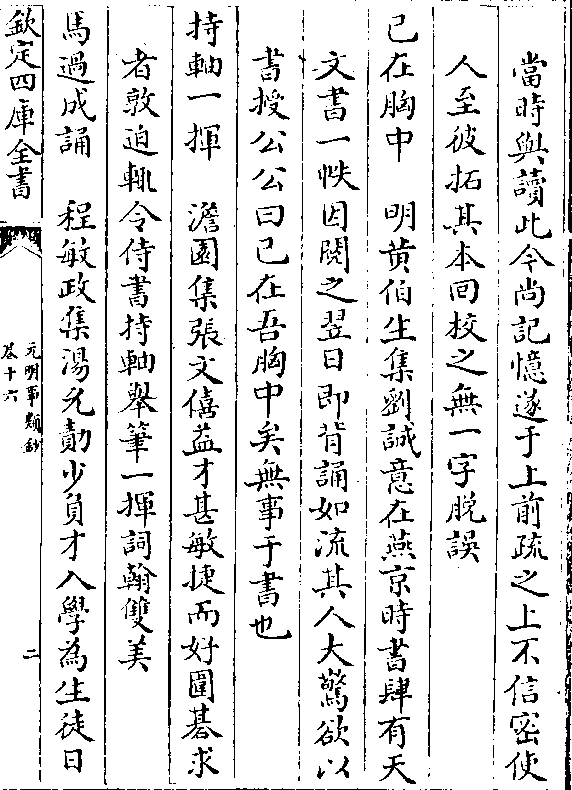 當時與讀此今尚記憶遂于上前疏之上不信密使
人至彼拓其本回校之無一字脱誤
已在胸中　明黄伯生集劉誠意在燕京時書肆有天
文書一帙因閱之翌日即背誦如流其人大驚欲以
書授公公曰已在吾胸中矣無事于書也
持軸一揮　澹園集張文僖益才甚敏捷而好圍碁求
者敦迫輒令侍書持軸舉筆一揮詞翰雙美
馬過成誦　程敏政集湯允勣少負才入學為生徒日
欽定四庫全書
元明事類鈔
卷十六
二